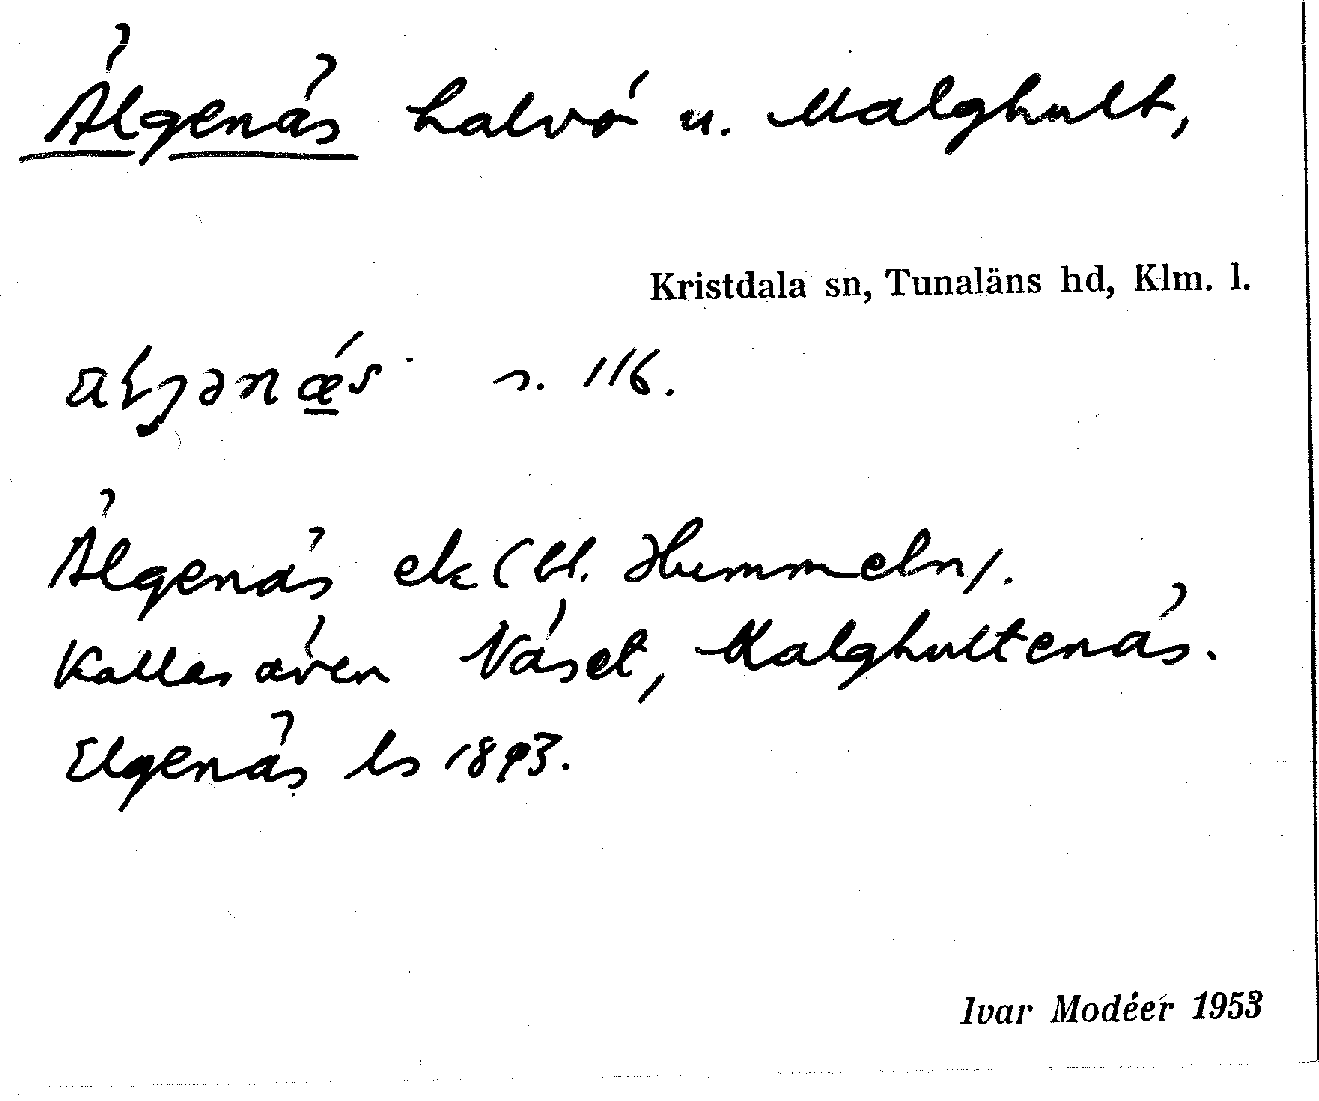 Älgenäs halvö u. Malghult,
Kristdala sn, Tunaläns hd, Klm. l.
s. 116.
Älgenäs ek (bl. Hummeln).
Kallas även Näset, Malghultenäs.
Elgenäs ls 1893.
Ivar Modéer 1953